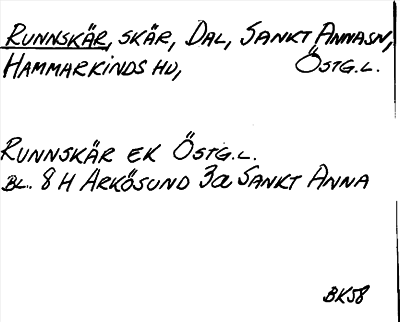 RUNNSKÄR, SKÄR, DAL, SANKT ANNA SN,
HAMMARKINDS HD, ÖSTG.L.
RUNNSKÄR EK ÖSTG.L.
BL. 8 H ARKÖSUND 3a SANKT ANNA
BK58